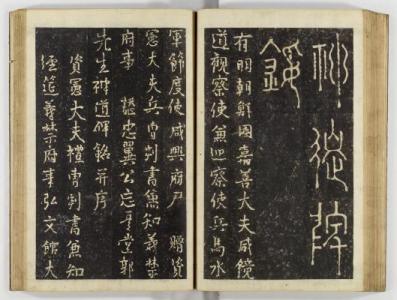 神道碑
銘
有明朝鮮國嘉善大夫咸鏡
道觀察使兼巡察使兵馬水
軍節度使咸興府尹 贈資
憲大夫兵曹判書兼知義禁
府事 諡忠翼公忘憂堂郭
先生神道碑銘并序
資憲大夫禮曹判書兼知
經筵義禁府事弘文館大